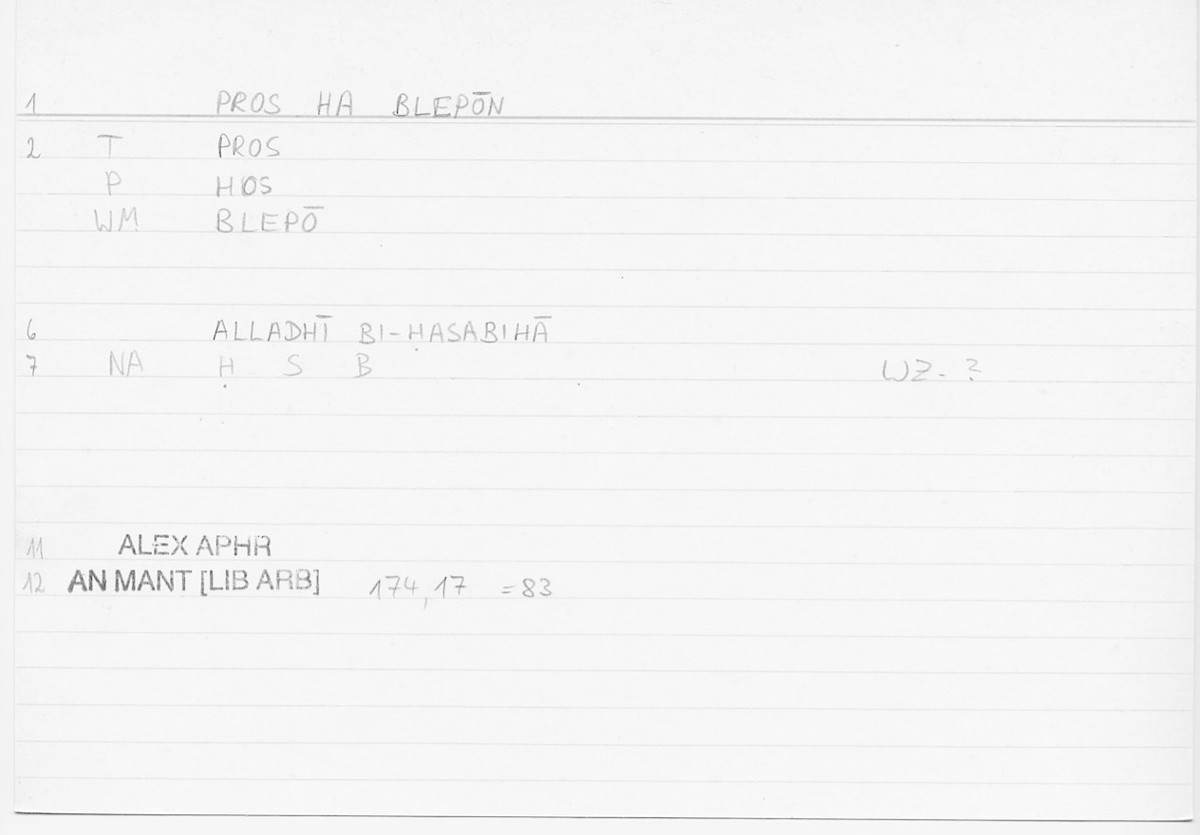 1 PROS HA BLEPŌN
2 T PROS
P HOS
WM BLEPŌ
6 ALLADHĪ BI-ḤASABIHĀ
7 NA Ḥ S B WZ- ?
11 ALEX APHR
12 AN MANT [LIB ARB] 174,17 =83